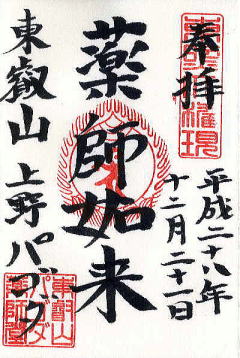 奉拝
平成二八年
十二月二十一日
薬師如来
東叡山 上野パゴダ
東叡山
パゴダ
薬師堂